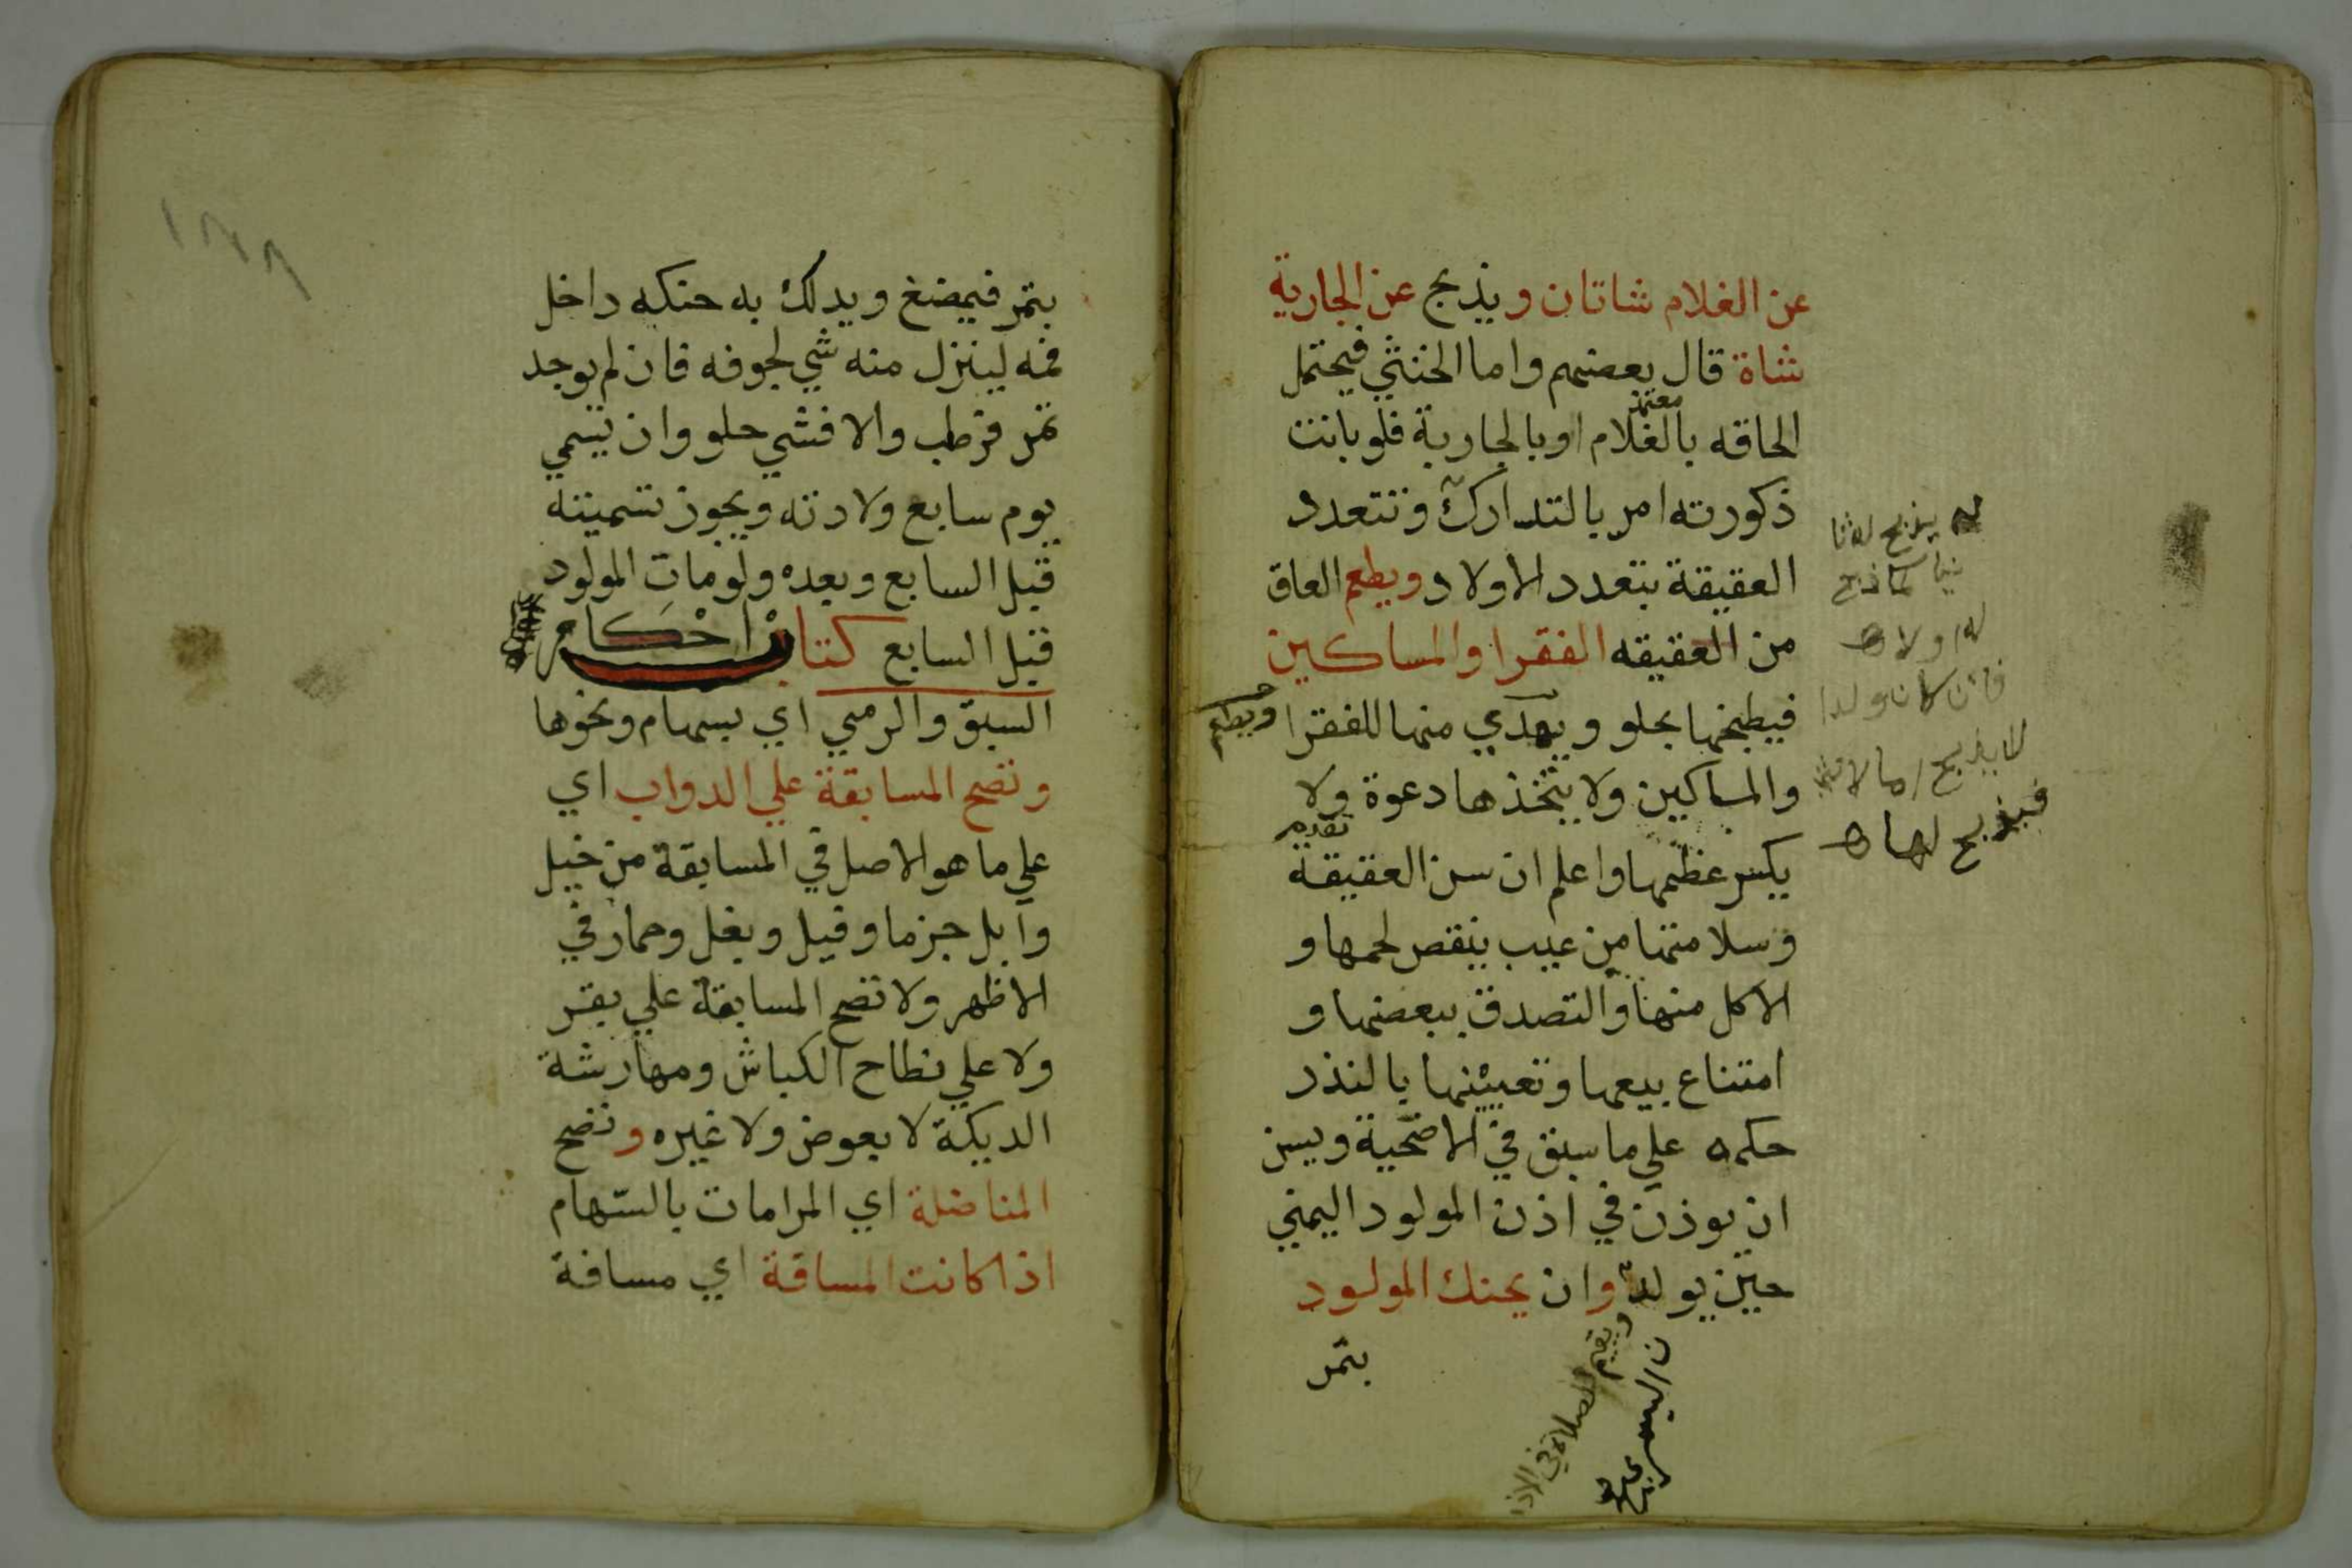 عن الغلام شاتان ويذبح عن الجارية
شاة قال بعضهم واما الخنثي فيحتمل
الحاقه بالغلام اوبالجارية فلو بانت
معتمد
ذكورته امر بالتدارك وتتعدد
العقيقة بتعدد الاولاد ويطعم العاق
من العقيقه الفقرا والمساكين
فيطبخها بحلو ويهدي منها للفقرا
ويطعم
والمساكين ولا يتخذها دعوة ولا
يكسر عظمها واعلم ان سن العقيقة
تقدم
وسلامتها من عيب ينقص لحمها و
الاكل منها والتصدق ببعضها و
امتناع بيعها وتعيينها بالنذر
حكمه علي ما سبق في الاضحية ويسن
ان يوذن في اذن المولود اليمني
حين يولد وان يحنك المولود
بتمر
ويقيم الصلاة في الاذ
ن اليسر
يذبح له ثا
نيا كما ذبح
له اولا ه
فان كان ولدا
لا يذبح اما لانثا
فيذبح لها ه
١٨٨
بتمر فيمضغ ويدلك به حنكه داخل
فمه لينزل منه شي لجوفه فان لم يوجد
تمر فرطب والا فشي حلو وان يسمي
يوم سابع ولادته ويجوز تسميته
قبل السابع وبعده ولومات المولود
قبل السابع كتاب احكام
السبق والرمي اي بسهام ونحوها
وتصح المسابقة علي الدواب اي
علي ما هو الاصل في المسابقة من خيل
وابل جزما وفيل وبغل وحمار في
الاظهر ولا تصح المسابقة علي بقر
ولا علي نطاح الكباش ومهارشة
الديكة لا بعوض ولا غيره وتصح
المناضلة اي المرامات بالسهام
اذا كانت المسافة اي مسافة